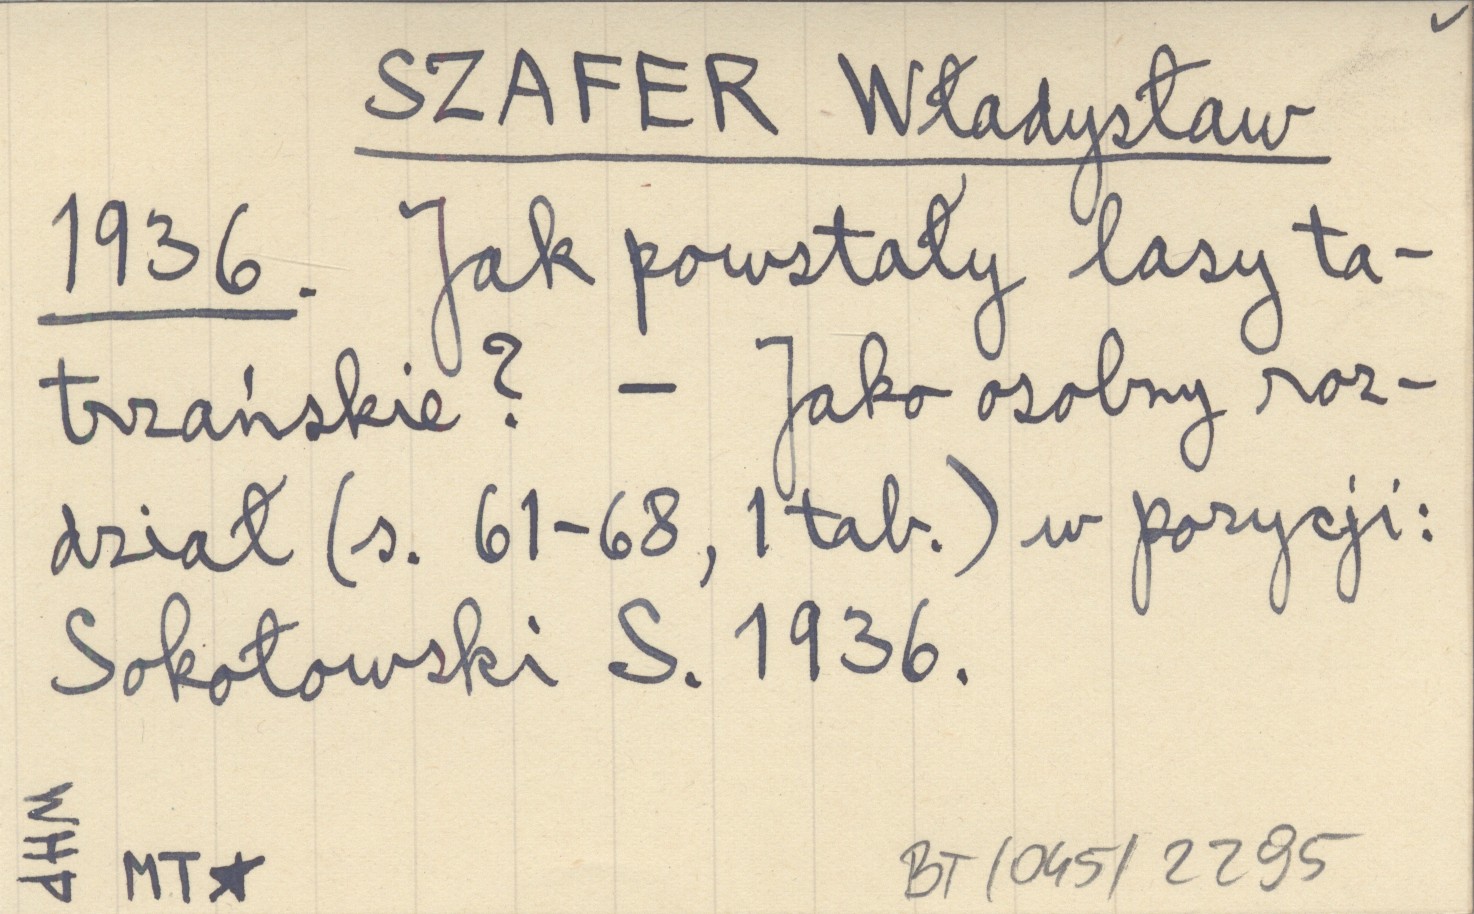 SZAFER Władysław
1936. Jak powstały lasy ta-
trzańskie? – Jako osobny roz-
dział (s. 61-68, 1 tab.) w pozycji:
Sokołowski S. 1936.
WHP
MT★
BT/045/2295